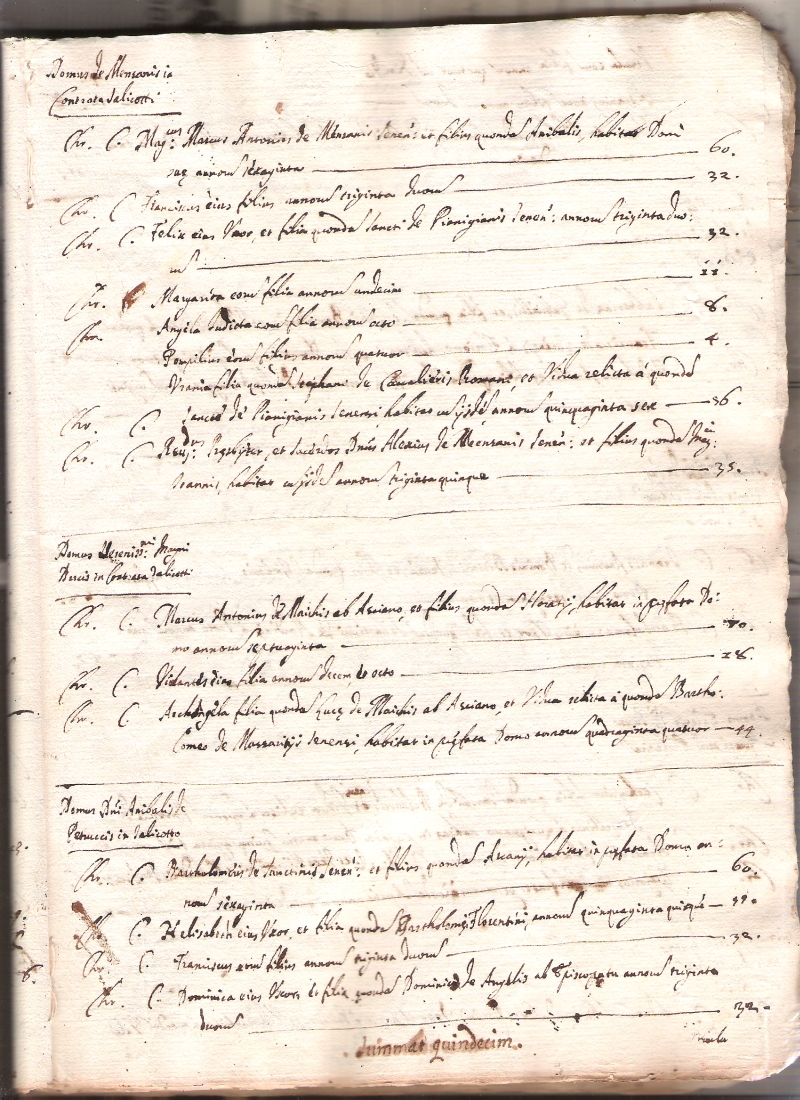 Domus de Mensanis in
Contrata Salicotti
Chr. C. Mag:cus Marcus Antonius de Mensanis Senen: et filius quondam Anibalis, habitat Domi
annorum sexaginta 60.
Chr. C. Franciscus eius filius annorum triginta duorum 32.
Chr. C. Felix eius Uxor, et filia quondam Sancti de Pianigianis Senen: annorum triginta duo:
rum 32.
Chr. Margarita eorum filia annorum undecim 11.
Chr. Angela eorum filia annorum octo 8.
Pompilius eorum filius annorum quatuor 4.
Urania filia quondam Stephani de Cavalieris Romani, et Vidua relicta á quondam
Chr. C. Sancto de Pianigianis Senensi habitat annorum quinquaginta sex 56.
Chr. C. Reu:dus Presbyter, et Sacerdos Dnus Alexius de Mensanis Senen: et filius quondam Mag:ci
Ioannis, habitat annorum triginta quinque 35.
Domus Sereniss:mi Magni
Ducis in Contrata Salicotti
Chr. C. Marcus Antonius de Maichis ab Asciano, et filius quondam Horatij, habitat in Do:
mo annorum septuaginta 70.
Chr. C. Violantes eius filia annorum decem et octo 18.
Chr. C. Archangela filia quondam Lucę de Maichis ab Asciano, et Vidua relicta á quondam Bartho:
lomeo de Massaritijs Senensi, habitat in Domo annorum quadraginta quatuor 44.
Domus Dni Anibalis de
Petruccis in Salicotto
Chr. C. Bartholomeus de Sanctinis Senen: et filius quondam Ascanij, habitat in Domo an:
norum sexaginta 60.
Chr. C. Helisabeth eius Uxor, et filia quondam Bartholomei Florentini, annorum quinquaginta quinque 55.
Chr. C. Franciscus eorum filius annorum triginta duorum 32.
Chr. C. Dominica eius Uxor, et filia quondam Dominici de Angelis ab Episcopatu annorum triginta
duorum 32.
Summat quindecim.